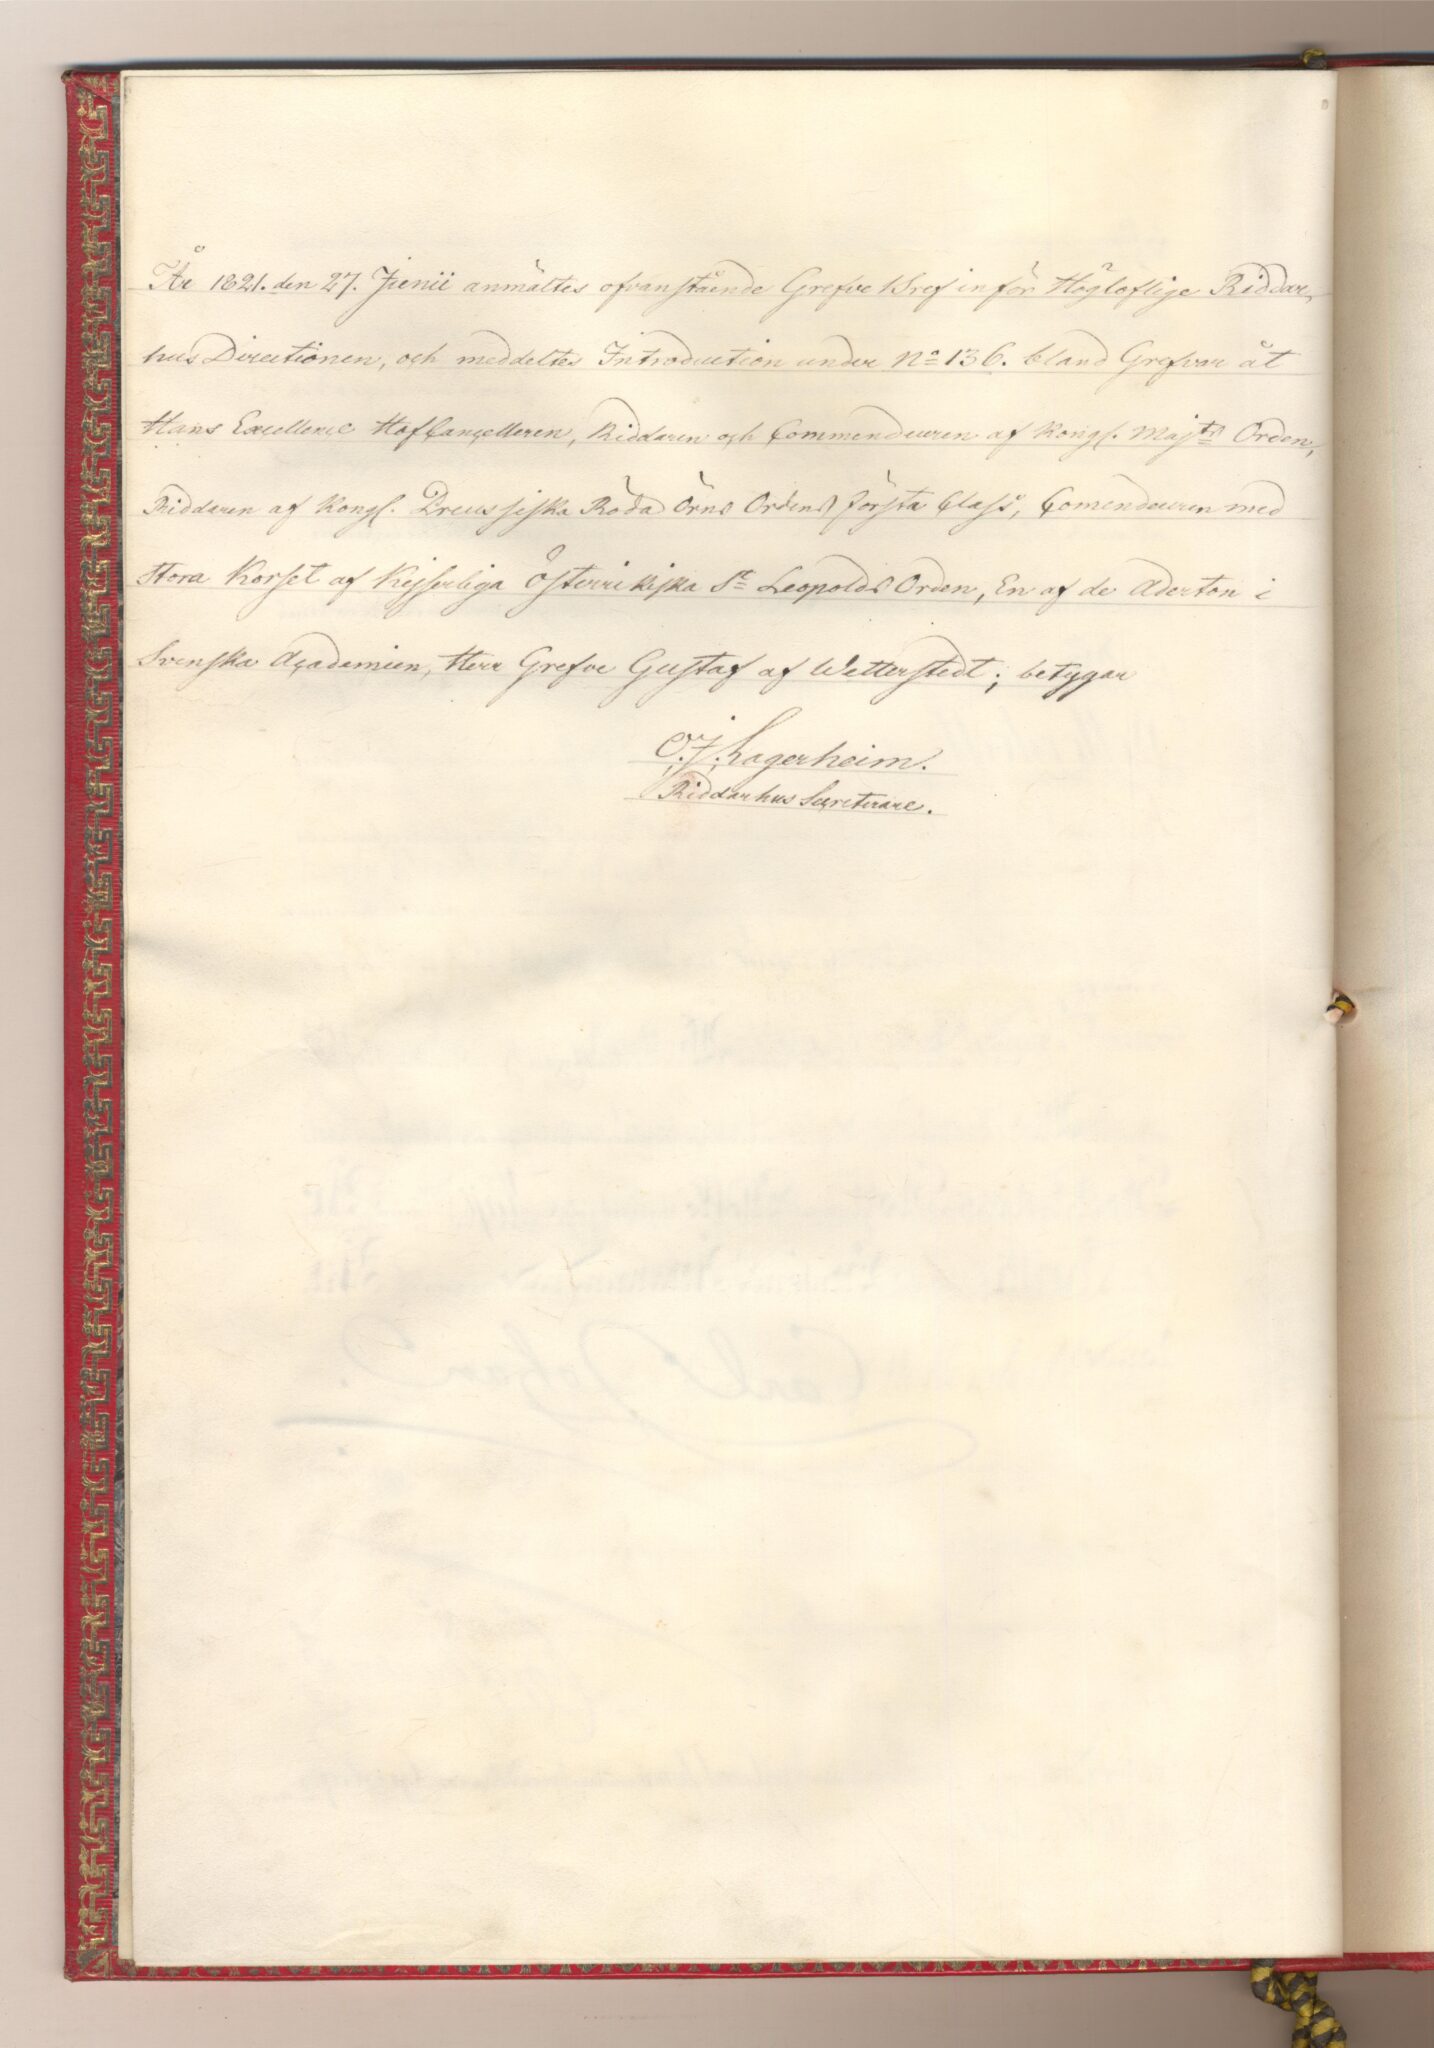 År 1821. den 27. Junii anmältes ofvanstående Grefve Bref inför Högloflige Riddar,
hus Directionen, och meddeltes Introduction under No 136. bland Grefvar åt
Hans Excellence HofCancelleren, Riddaren och Commendeuren af Kongl. Majts Orden,
Riddaren af Kongl. Preussiska Röda Örns Ordens första Class, Comendeuren med
Stora Korset af Kejserliga Österrikiska St Leopolds Orden, En af de Aderton i
Svenska Academien, Herr Grefve Gustaf af Wetterstedt; betygar
O. J. Lagerheim.
Riddarhus Secreterare.